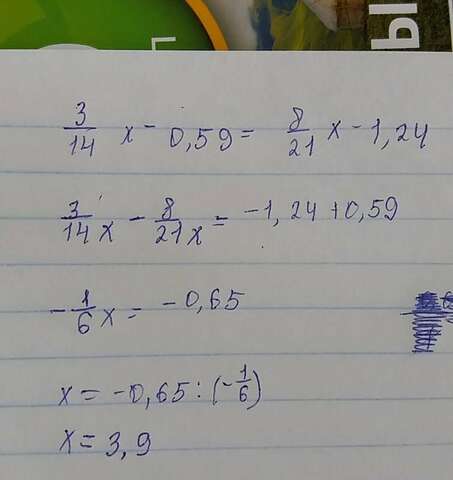 ы
3/14 x - 0,59 = 8/21 x - 1,24
3/14 x - 8/21 x = -1,24 + 0,59
- 1/6 x = -0,65
x = -0,65 : (- 1/6)
x = 3,9